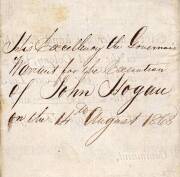 His Excellency the Governors
Warrant for the Execution
of John Hogan
on the 14th August 1868